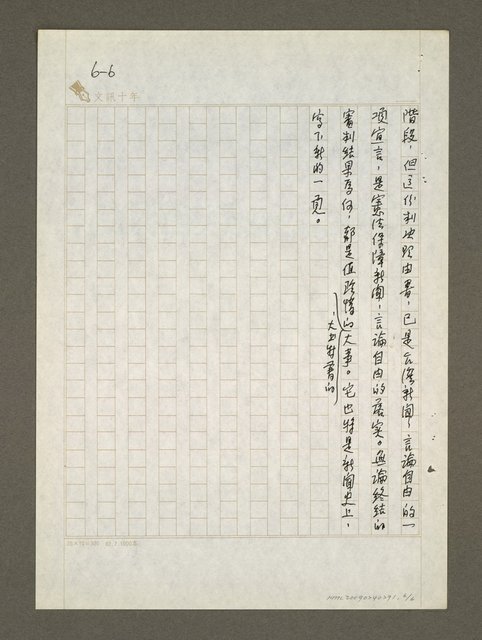 6-6
文訊十年
階段，但這份判決理由書，已是台灣新聞、言論自由的一
項宣言，是憲法保障新聞、言論自由的落实。無論終結的
審判結果為何，都是值得的大事。它也將是新聞史上，
，大書特書的
寫下新的一頁。
NMTL20090240291, 6/6